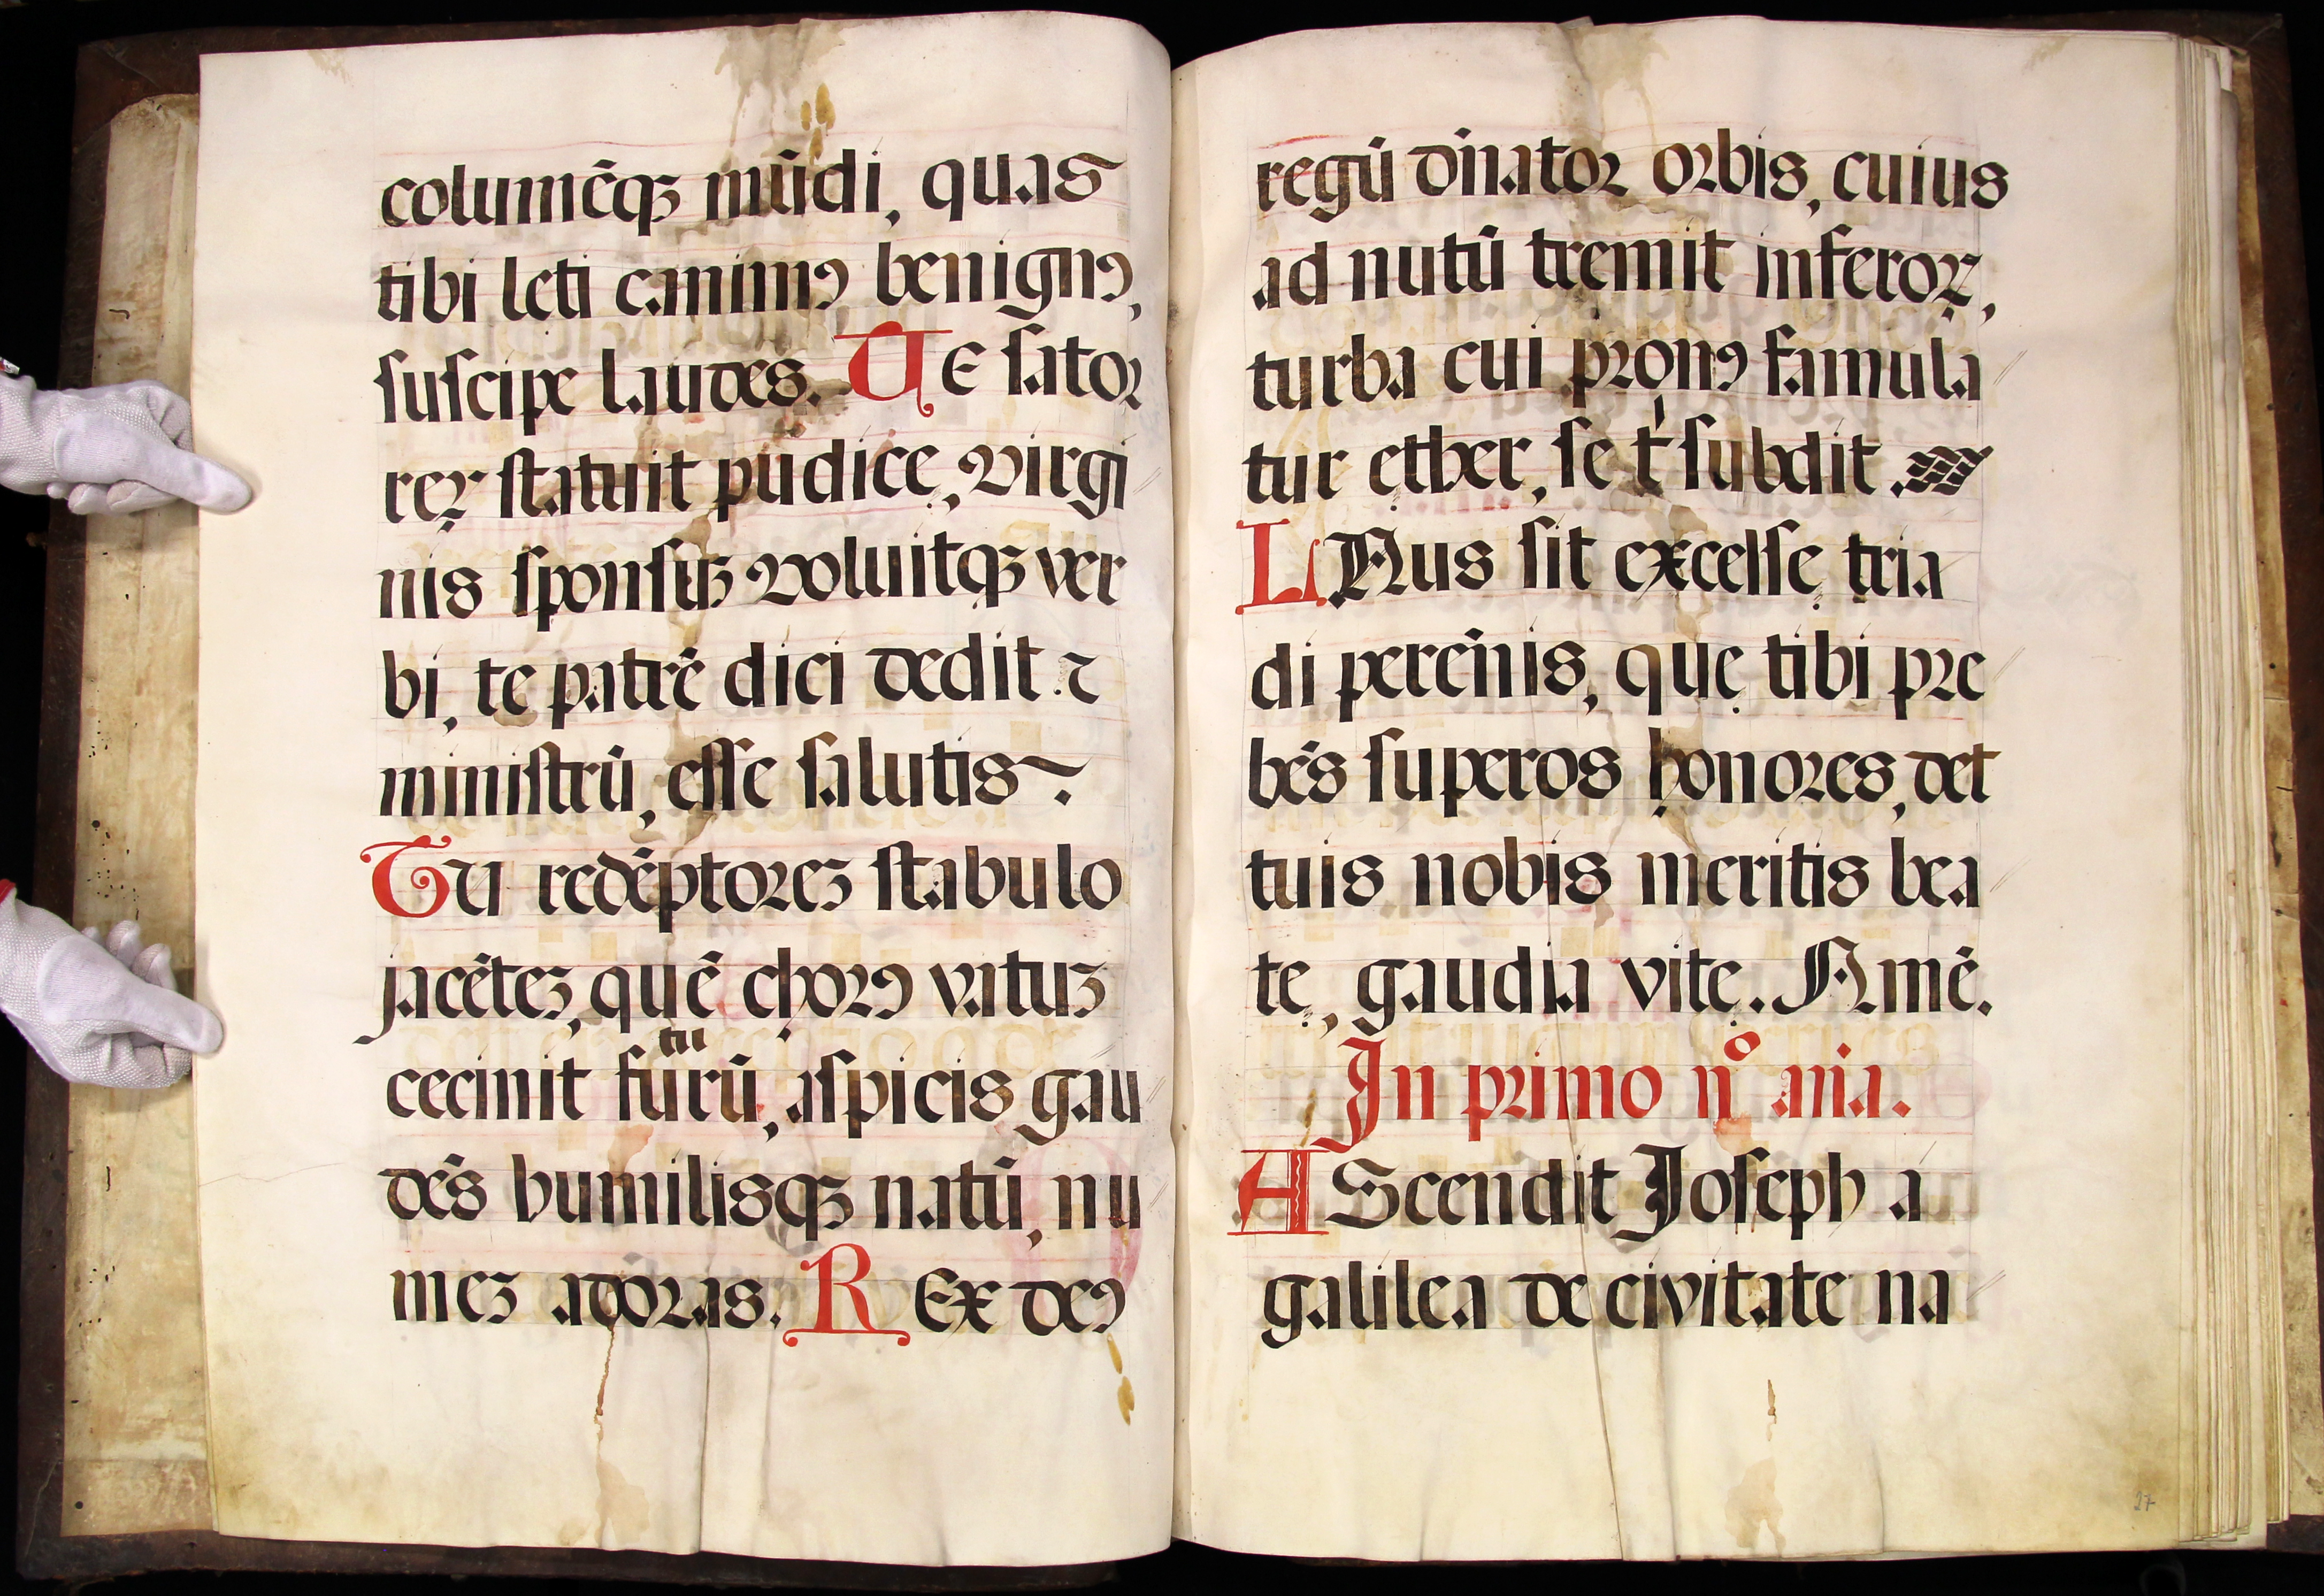 columēqꝫ mūdi, quas
tibi leti canimꝰ benignꝰ,
ſuſcipe laudes. TE ſator
reꝝ ſtatuit pudice, virgi
nis ſponſuꝫ voluitqꝫ ver
bi, te patrē dici dedit ⁊
miniſtrū, eſſe ſalutis.
Tu redēptoreꝫ ſtabulo
jacēteꝫ, quē chorꝰ vatuꝫ
cecinit futurū, aſpicis gau
dēs humilisqꝫ natū, nu
meꝫ adoras. REx deꝰ
regū dn̄ator orbis, cuius
ad nutū tremit inferoꝝ,
turba cui pronꝰ famula
tur ether, ſe t' ſubdit.
LAus ſit excelſe tria
di perēnis, quę tibi pre
bēs ſuperos honores, det
tuis nobis meritis bea
tę, gaudia vitę. Amē.
In primo nº. ana.
AScendit Joſeph a
galilea de civitate na
27